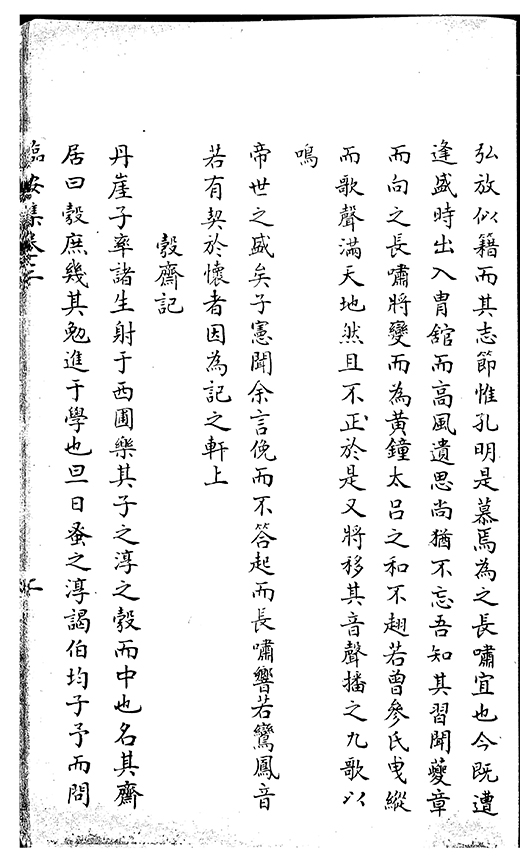 弘放似籍而其志節惟孔明是慕焉為之長嘯宜也今既遭
逢盛時出入胄舘而高風遺思尚猶不忘吾知其習聞夔章
而向之長嘯將變而為黃鐘太呂之和不翅若曾參氏曳縱
而歌聲滿天地然且不正於是又將移其音聲播之九歌以
鳴
帝世之盛矣子憲聞余言俛而不答起而長嘯響若鸞鳳音
若有契於懷者因為記之軒上
彀齋記
丹崖子率諸生射于西圃樂其子之淳之彀而中也名其齋
居曰彀庶幾其勉進于學也旦日蚤之淳謁伯均子予而問
臨安集卷六